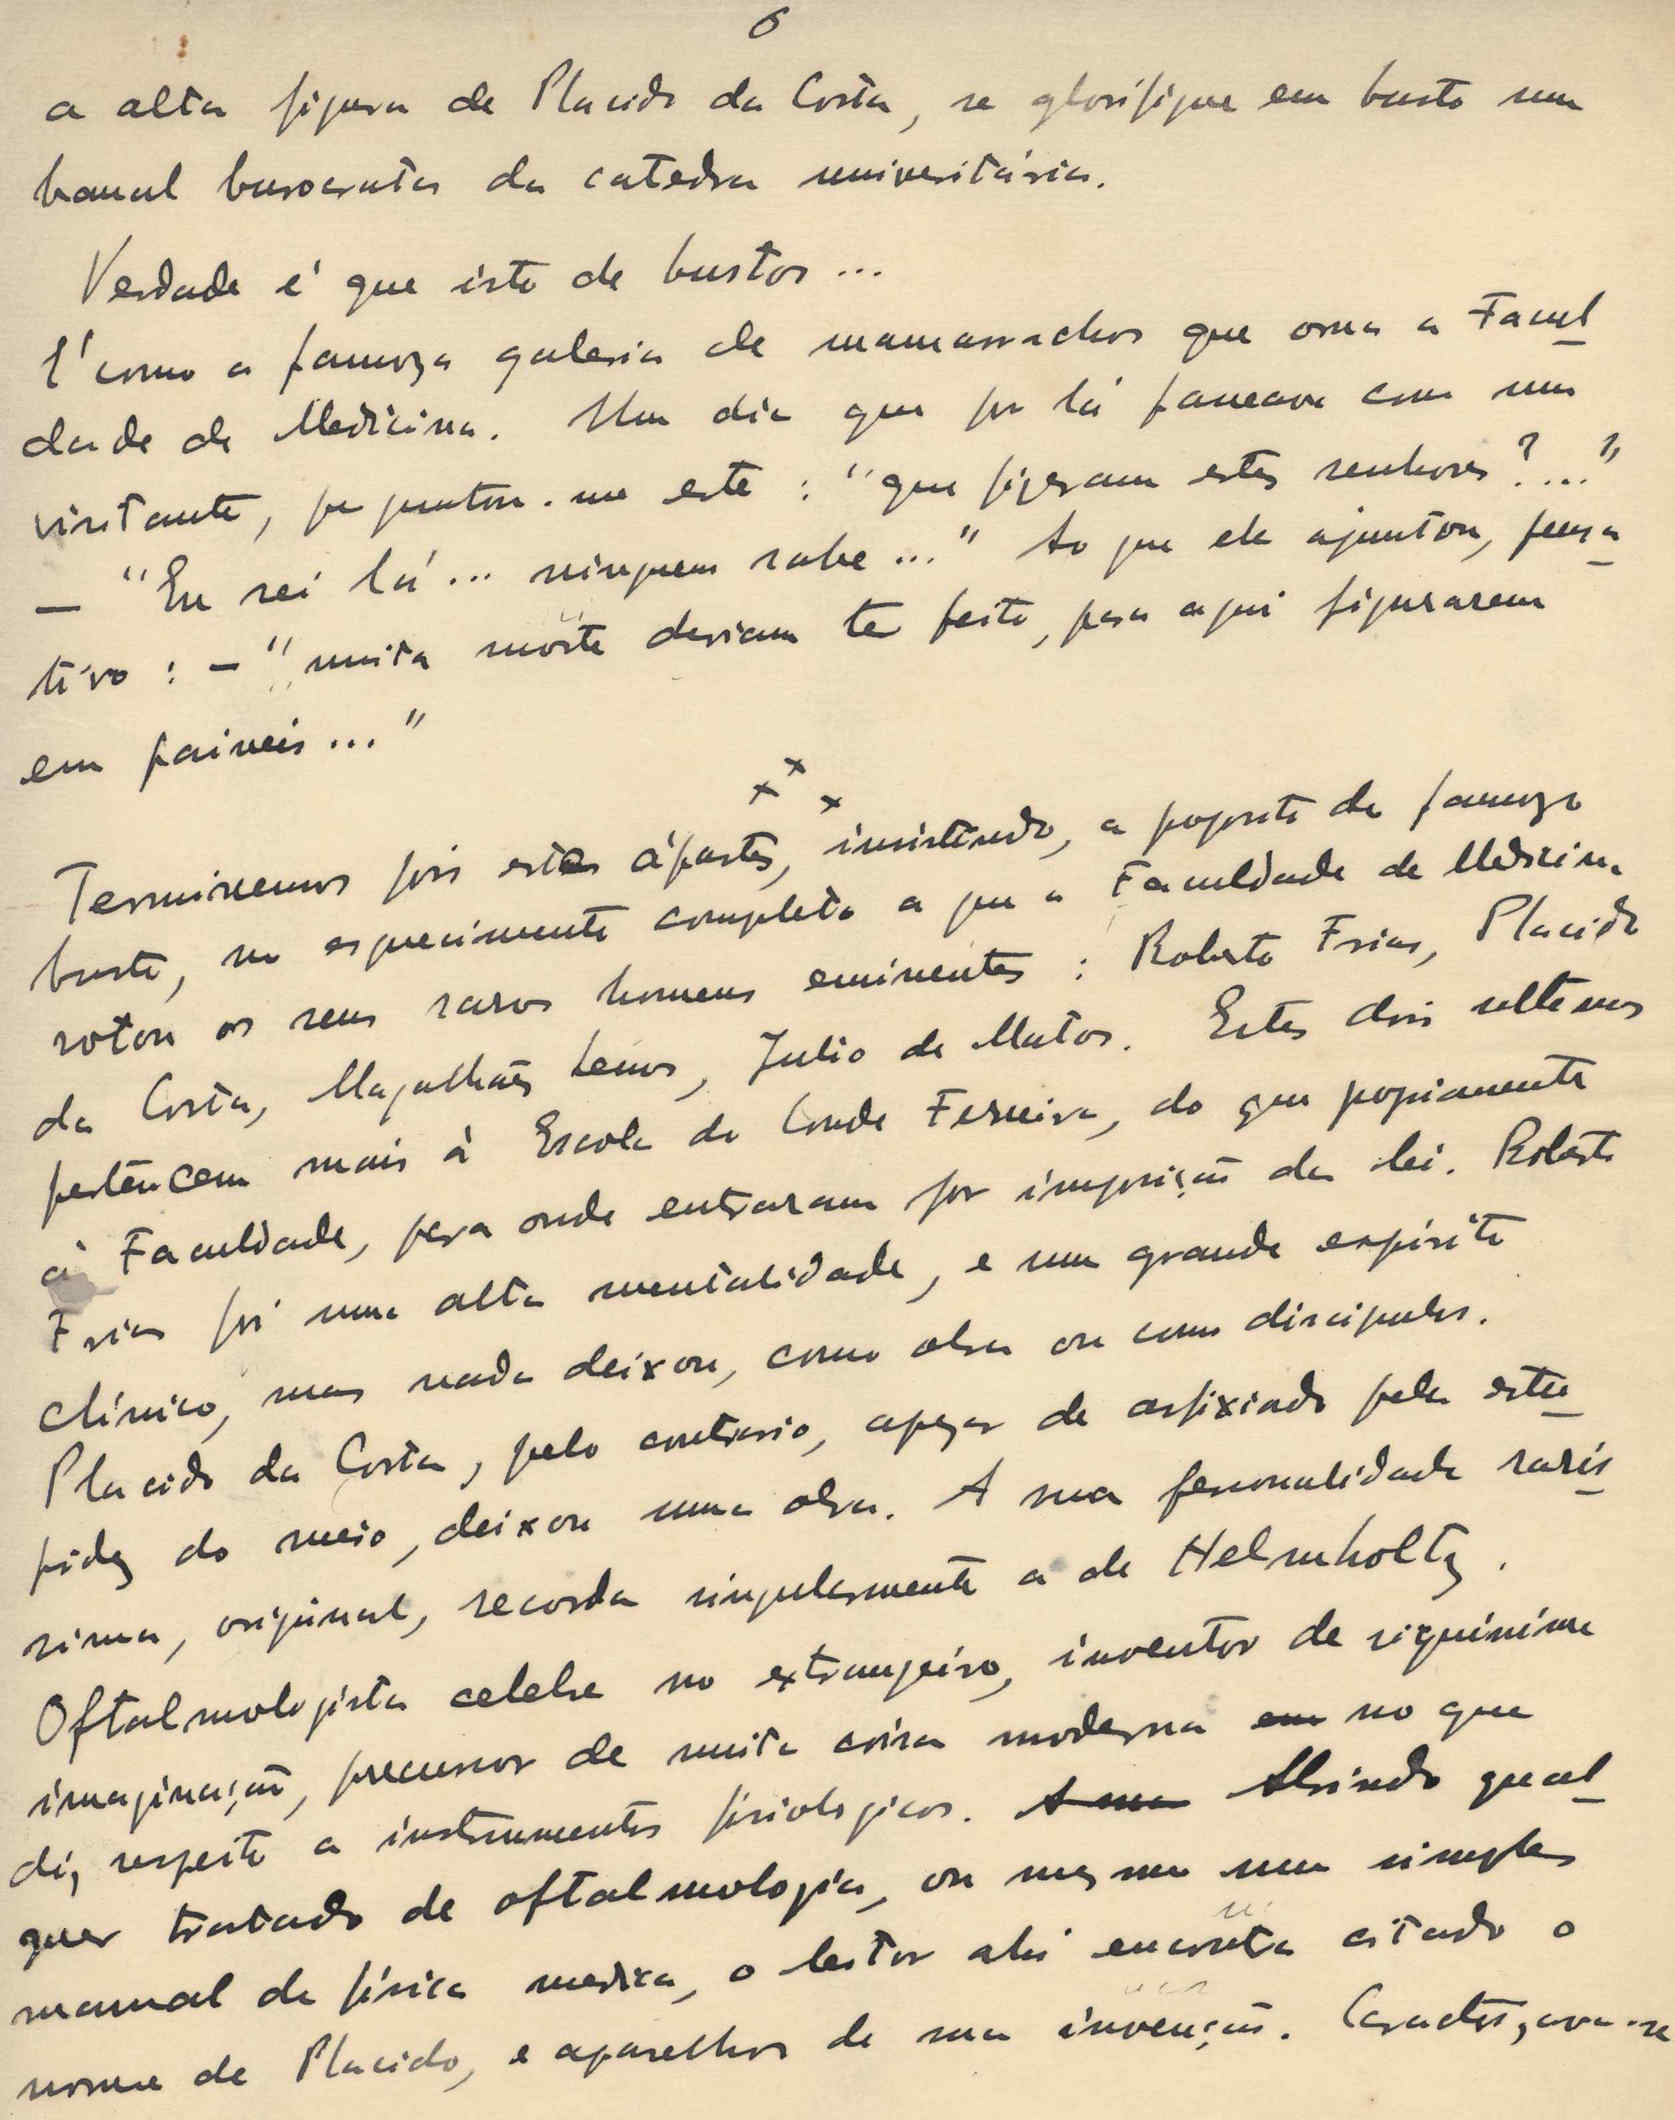 6
a alta figura de Placido da Costa, se glorifique em busto um
banal burocrata da catedra universitária.
Verdade é que isto de bustos...
É como a famoza galeria de mamarrachos que orna a Facul
dade de Medicina. Um dia que por lá passeava com um
visitante, perguntou-me este: "que fizeram estes senhores?..."
— "Eu sei lá... ninguem sabe..." Ao que ele ajuntou, pensa
tivo: — "muita morte deviam ter feito, para aqui figurarem
em paineis..."
x x x
Terminemos pois estes ápartes, insistindo, a proposito do famozo
busto, no esquecimento completo a que a Faculdade de Medicina
votou os seus raros homens eminentes: Roberto Frias, Placido
da Costa, Magalhães Lemos, Julio de Matos. Estes dois ultimos
pertencem mais á Escola do Conde Ferreira, do que propriamente
á Faculdade, para onde entraram por imposição da lei. Roberto
Frias foi uma alta mentalidade, e um grande espirito
clínico, mas nada deixou, como obra ou como discipulos.
Placido da Costa, pelo contrario, apezar de asfixiado pela estu
pidez do meio, deixou uma obra. A sua personalidade rarís
sima, original, recorda singularmente a de Helmholtz.
Oftalmologista celebre no extrangeiro, inventor de riquinima
imaginação, precursor de muita coisa moderna em no que
diz respeito a instrumentos fisiologicos. A sua Abrindo qual
quer tratado de oftalmologia, ou mesmo um simples
manual de física medica, o leitor ahi encontra citado o
nome de Placido, e aparelhos de sua invenção. Caracterizava-se